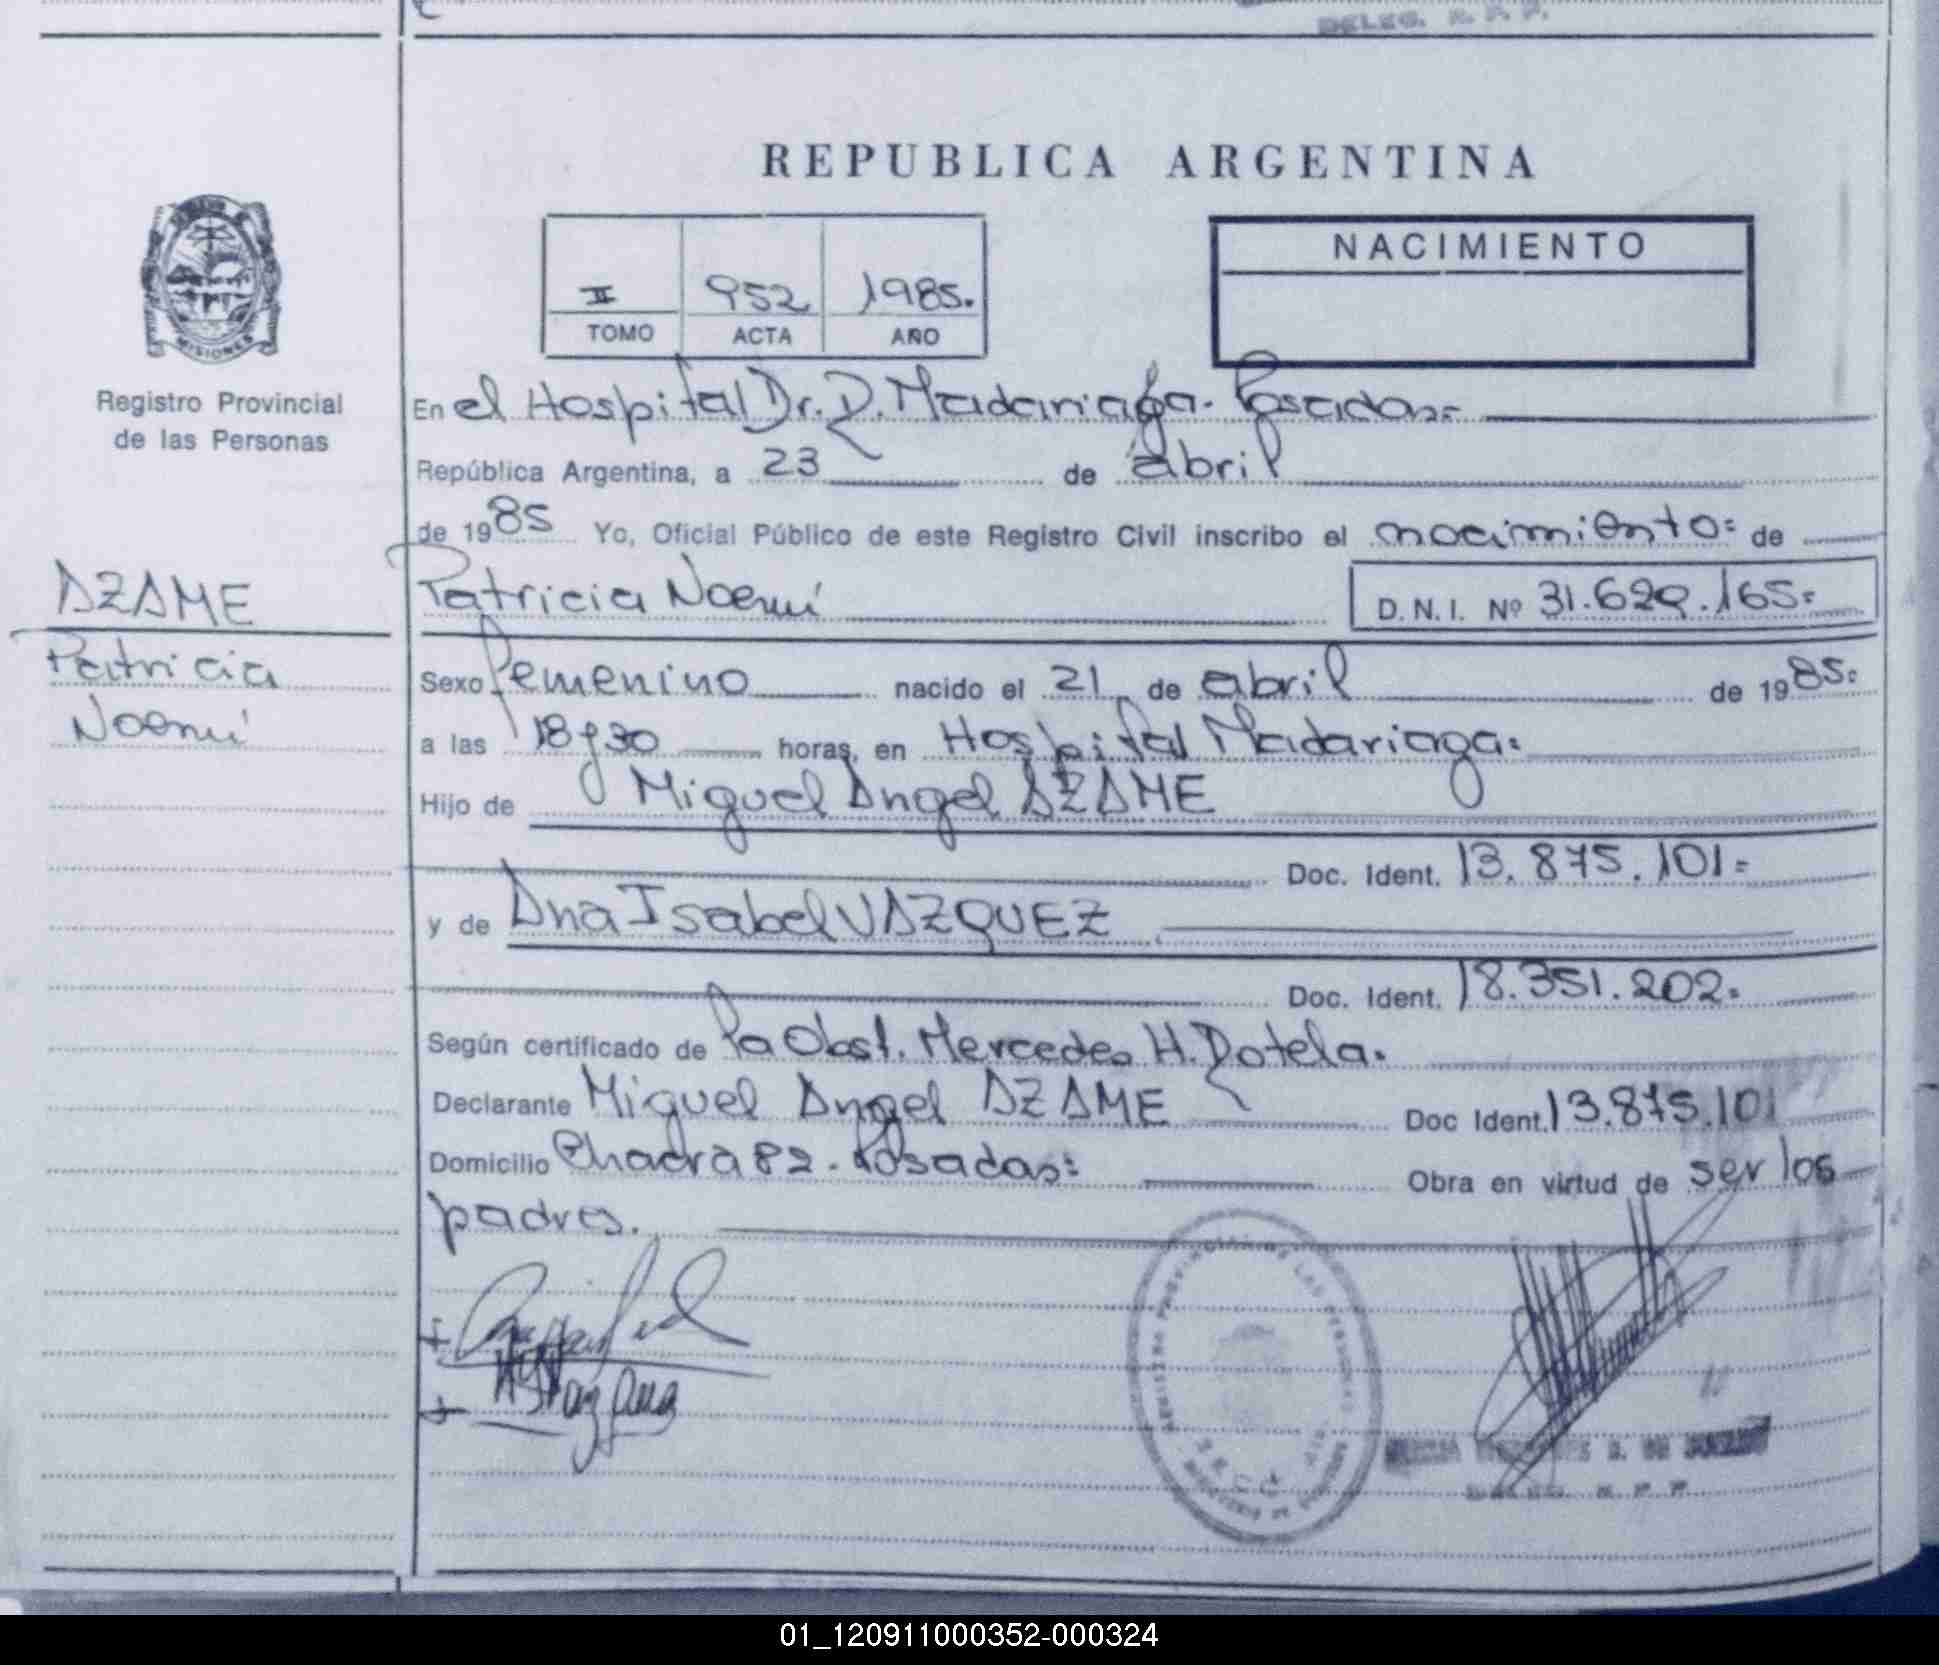 DELEG. R. P. P.
REPUBLICA ARGENTINA
NACIMIENTO
II 952 1985.
TOMO ACTA AÑO
MISIONES
Registro Provincial
de las Personas
En el Hospital Dr. D. Madariaga. Posadas=
República Argentina, a 23 de abril
de 1985 Yo, Oficial Público de este Registro Civil inscribo el nacimiento= de
AZAME
Patricia
Noemí
Patricia Noemí D.N.I. Nº 31.629.165=
Sexo femenino nacido el 21 de abril de 1985=
a las 18 y 30 horas, en Hospital Madariaga=
Hijo de Miguel Angel AZAME
Doc. Ident. 13.875.101=
y de Ana Isabel VAZQUEZ
Doc. Ident. 18.351.202=
Según certificado de la Obst. Mercedes H. Dotela.
Declarante Miguel Angel AZAME Doc Ident. 13.875.101
Domicilio Chacra 82. Posadas= Obra en virtud de ser los
padres.
01_120911000352-000324